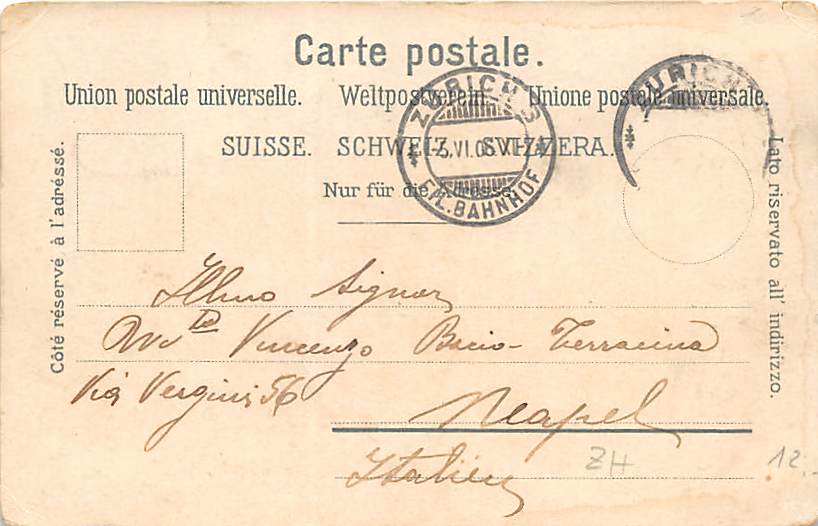 Carte postale.
Union postale universelle. Weltpostverein. Unione postale universale.
SUISSE. SCHWEIZ. SVIZZERA.
Nur für die Adresse.
Côté réservé à l'adréssé.
Lato riservato all' indirizzo.
ZÜRICH 3
VI.06.XI
FIL. BAHNHOF
ZÜRICH
Illmo Signor
Vincenzo Terracina
Via Vergini 56
Neapel
Italien
ZH
12.-